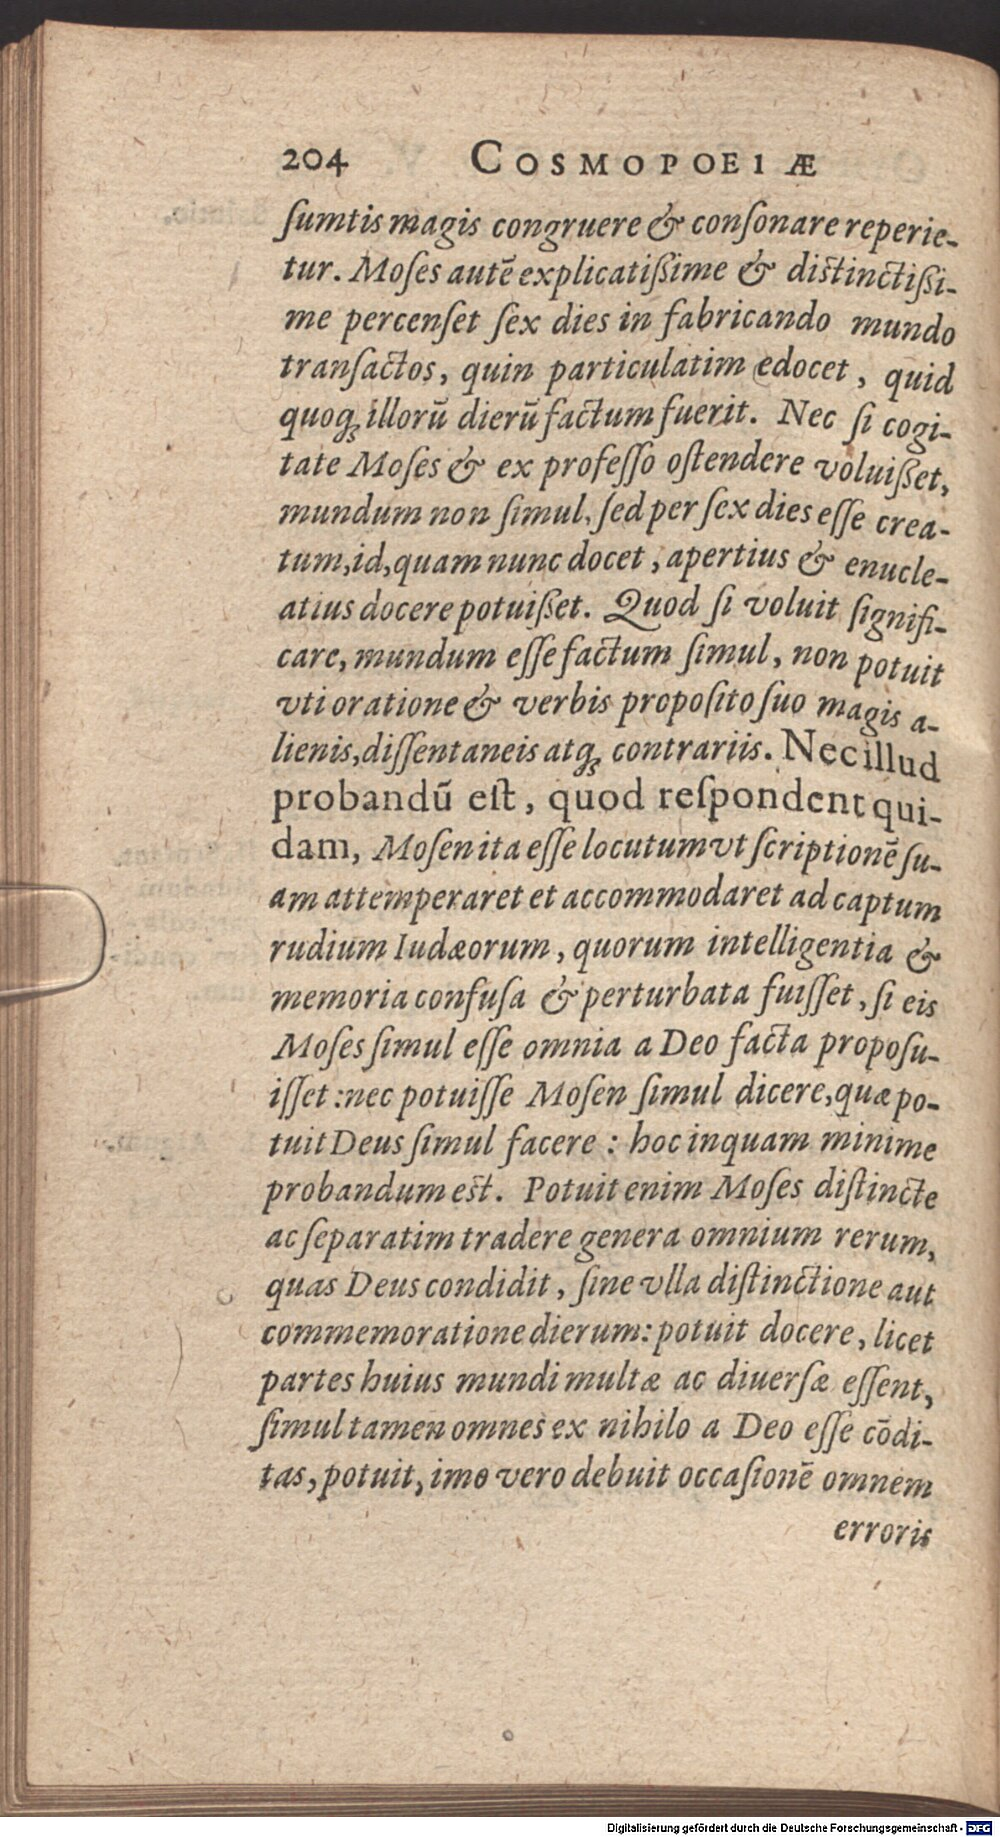 204 COSMOPOEIÆ
ſumtis magis congruere & conſonare reperie-
tur. Moſes autē explicatißime & diſtinctißi-
me percenſet ſex dies in fabricando mundo
tranſactos, quin particulatim edocet, quid
quoq; illorū dierū factum fuerit. Nec ſi cogi-
tate Moſes & ex profeſſo oſtendere voluißet,
mundum non ſimul, ſed per ſex dies eſſe crea-
tum, id, quam nunc docet, apertius & enucle-
atius docere potuißet. Quod ſi voluit ſignifi-
care, mundum eſſe factum ſimul, non potuit
vti oratione & verbis propoſito ſuo magis a-
lienis, diſſentaneis atq; contrariis. Nec illud
probandū eſt, quod reſpondent qui-
dam, Moſen ita eſſe locutum vt ſcriptionē ſu-
am attemperaret et accommodaret ad captum
rudium Iudæorum, quorum intelligentia &
memoria confuſa & perturbata fuiſſet, ſi eis
Moſes ſimul eſſe omnia a Deo facta propoſu-
iſſet: nec potuiſſe Moſen ſimul dicere, quæ po-
tuit Deus ſimul facere : hoc inquam minime
probandum eſt. Potuit enim Moſes diſtincte
ac ſeparatim tradere genera omnium rerum,
quas Deus condidit, ſine vlla diſtinctione aut
commemoratione dierum: potuit docere, licet
partes huius mundi multæ ac diuerſæ eſſent,
ſimul tamen omnes ex nihilo a Deo eſſe cōdi-
tas, potuit, imo vero debuit occaſionē omnem
erroris
Digitalisierung gefördert durch die Deutsche Forschungsgemeinschaft - DFG